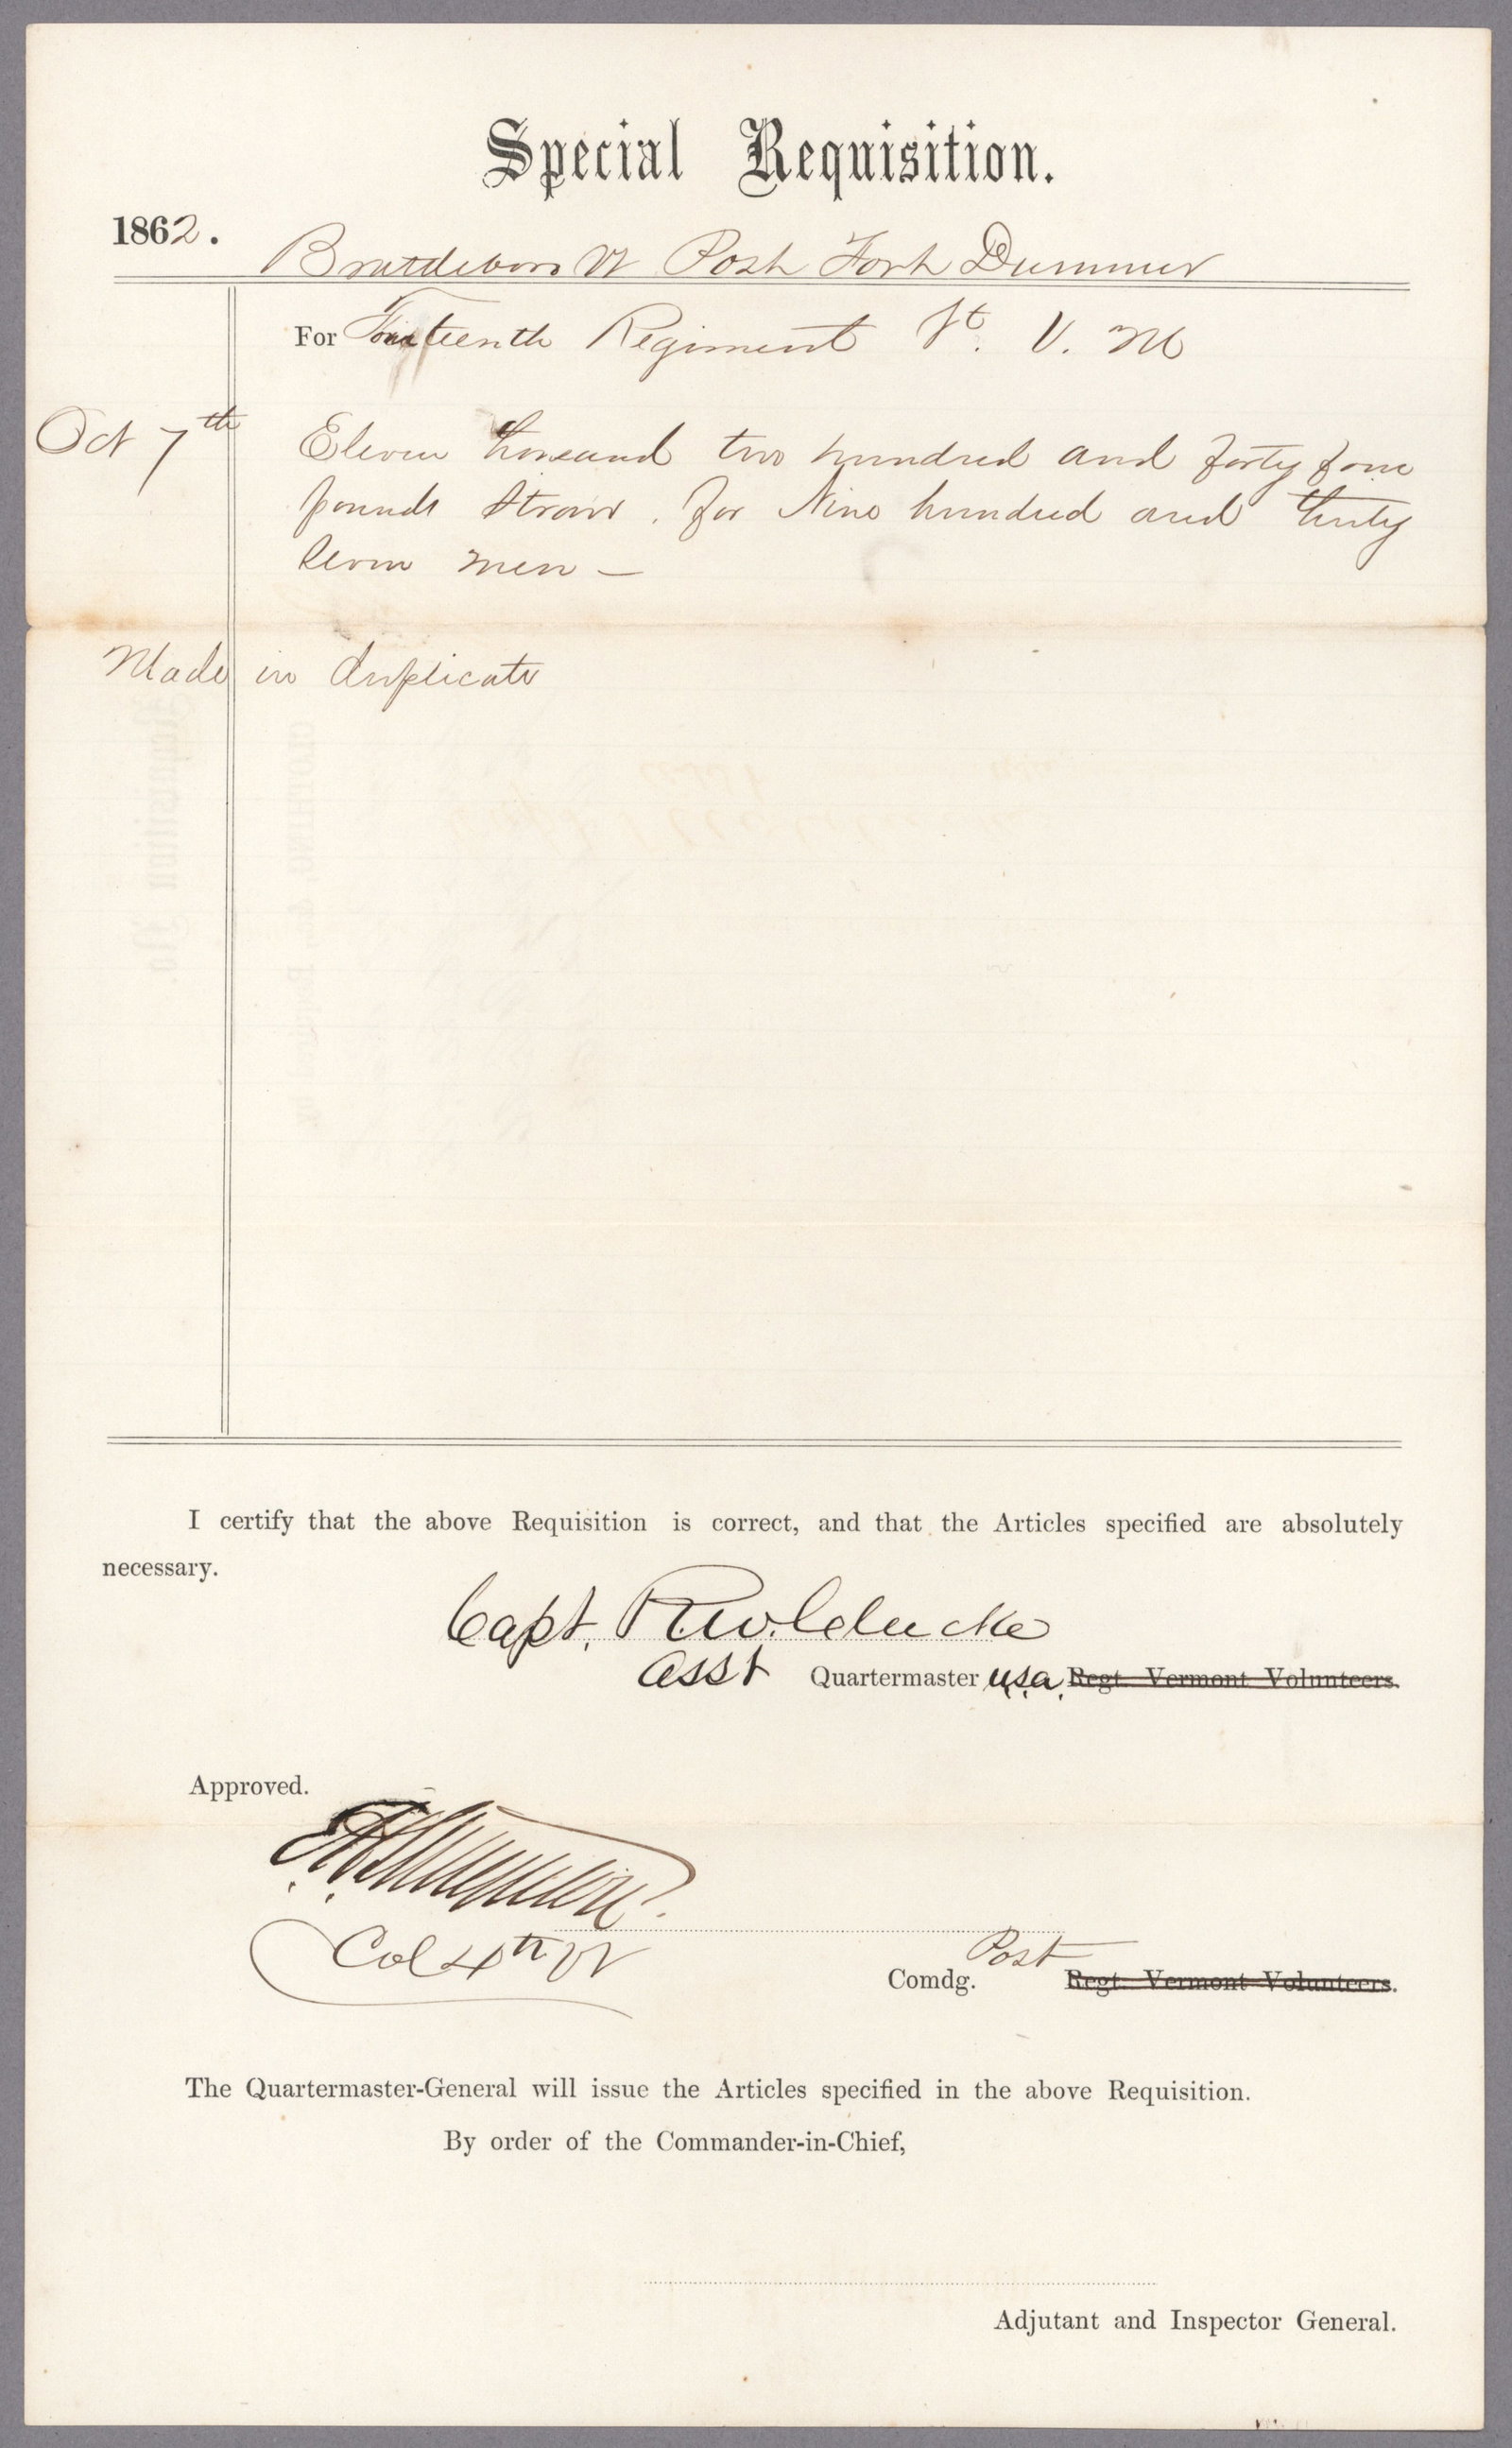 Special Requisition.
1862.
Brattleboro Vt Post Fort Dummer
For Fourteenth Regiment Vt. V. M
Oct 7th
Eleven thousand two hundred and forty four
pounds straw. for Nine hundred and thirty
seven men —
Made in duplicate
I certify that the above Requisition is correct, and that the Articles specified are absolutely
necessary.
Capt. R. W. Clarke
Asst Quartermaster U.S.A. Regt. Vermont Volunteers.
Approved.
Col 4th Vt
Post
Comdg. Regt. Vermont Volunteers.
The Quartermaster-General will issue the Articles specified in the above Requisition.
By order of the Commander-in-Chief,
Adjutant and Inspector General.